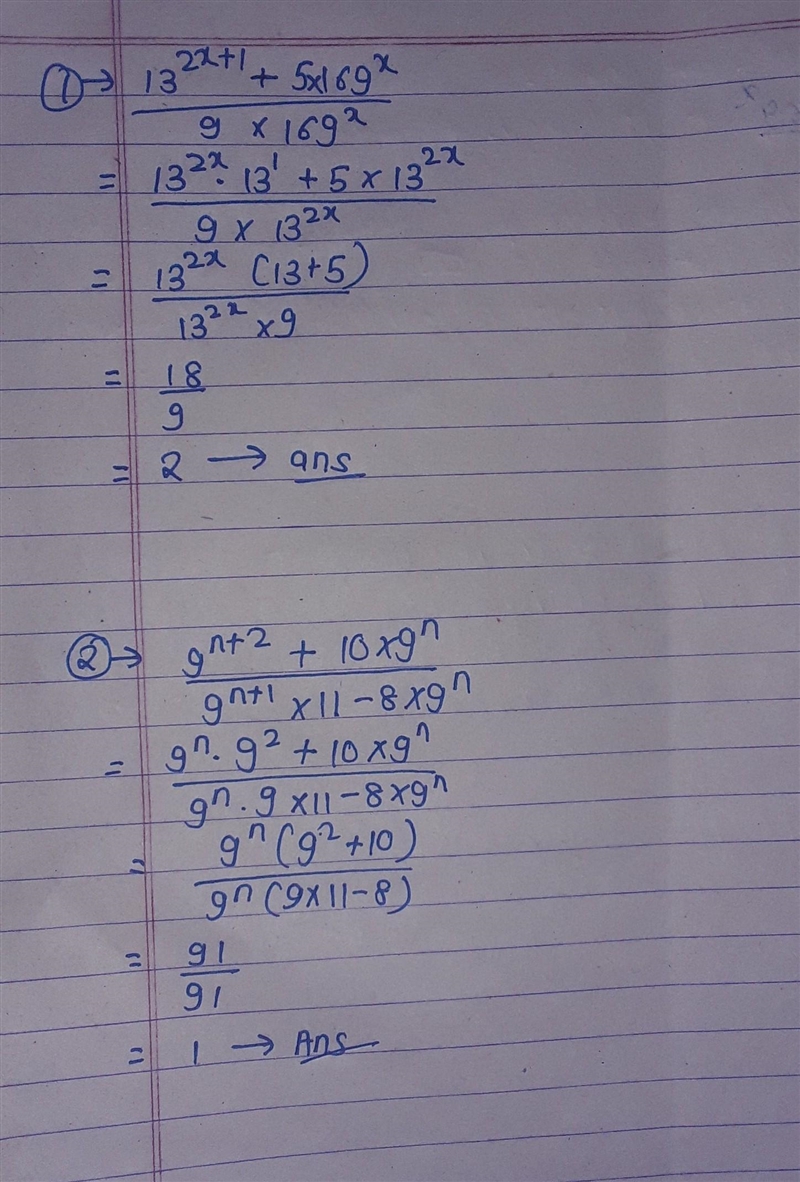 ① → 13^(2x+1) + 5×169^x
9 × 169^x
= 13^(2x) · 13^1 + 5 × 13^(2x)
9 × 13^(2x)
= 13^(2x) (13+5)
13^(2x) × 9
= 18
9
= 2 → ans
② → 9^(n+2) + 10×9^n
9^(n+1) ×11 - 8×9^n
= 9^n · 9^2 + 10×9^n
9^n · 9 ×11 - 8×9^n
= 9^n (9^2 +10)
9^n (9×11-8)
= 91
91
= 1 → Ans